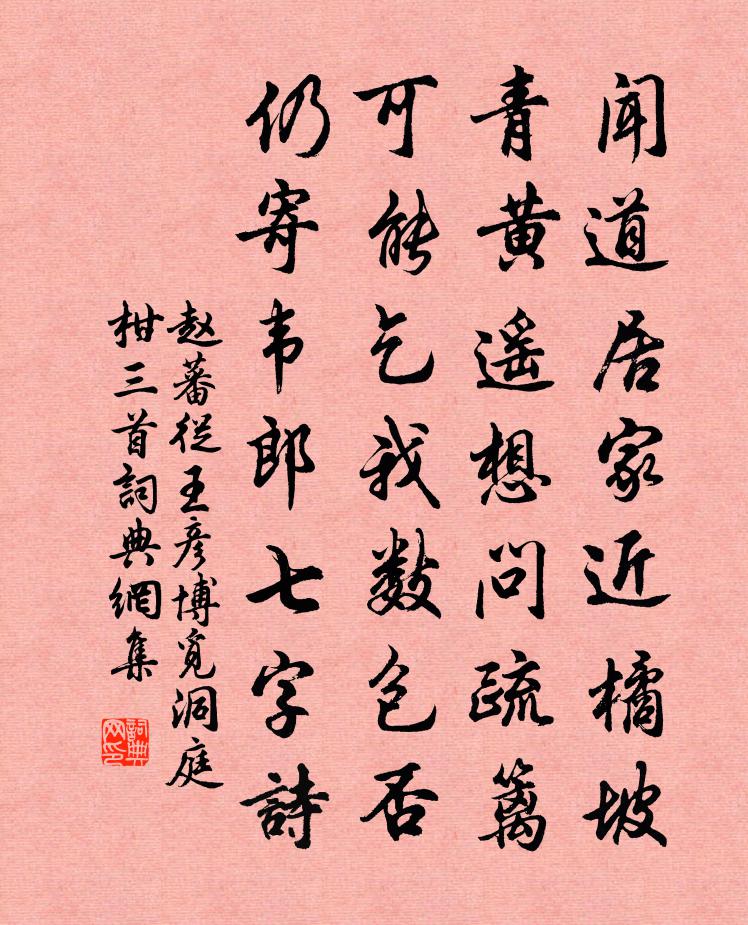 闻道居家近橘坡
青黄遥想问疏篱
可能乞我数包否
仍寄韦郎七字詩
赵蕃從王彦博觅洞庭
柑三首詞典網集
詞典网印